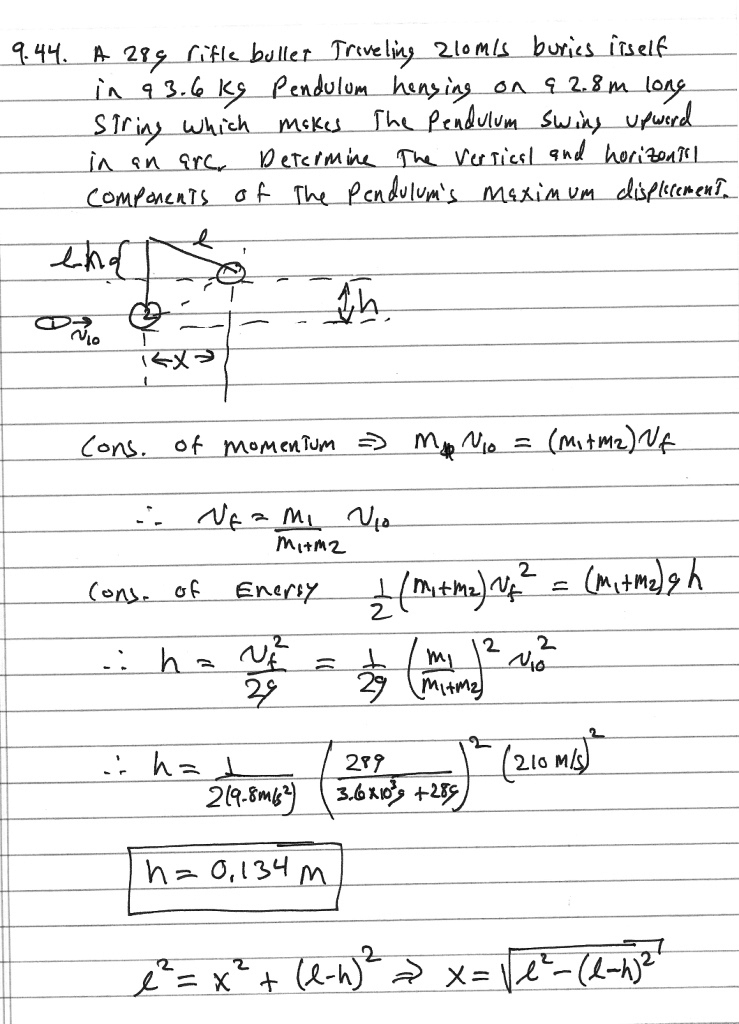 9.44. A 28g rifle bullet Traveling 210m/s buries itself
in a 3.6 Kg Pendulum hanging on a 2.8m long
String which makes The Pendulum Swing upward
in an arc. Determine The Vertical and horizontal
Components of The Pendulum's Maximum displacement.
l
l-h
h
1
2
v₁₀
x
Cons. of momentum ⇒ m₁ v₁₀ = (m₁+m₂) v_f
∴ v_f = m₁/(m₁+m₂) v₁₀
Cons. of Energy 1/2 (m₁+m₂) v_f² = (m₁+m₂) g h
∴ h = v_f²/2g = 1/2g (m₁/(m₁+m₂))² v₁₀²
∴ h = 1/2(9.8m/s²) (28g/(3.6x10³g +28g))² (210 m/s)²
h = 0.134 m
l² = x² + (l-h)² ⇒ x = √(l²-(l-h)²)